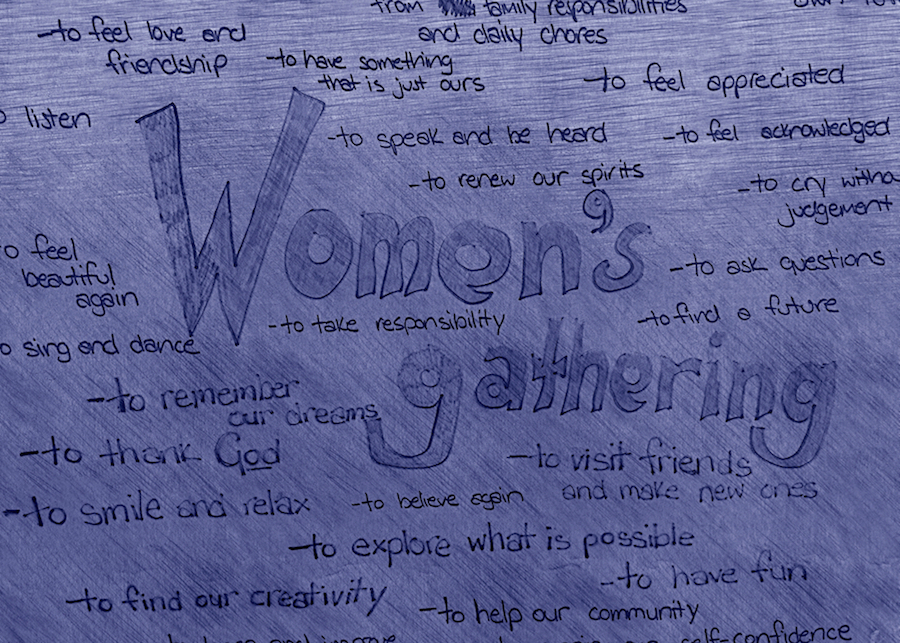 from family responsibilities
and daily chores
-to feel love and
friendship
-to have something
that is just ours
-to feel appreciated
listen
-to speak and be heard
-to feel acknowledged
-to renew our spirits
-to cry witho
judgement
Women's
gathering
to feel
beautiful
again
-to ask questions
-to take responsibility
-to find a future
to sing and dance
-to remember
our dreams
-to thank God
-to visit friends
and make new ones
-to smile and relax
-to believe again
-to explore what is possible
-to have fun
-to find our creativity
-to help our community
self-confidence